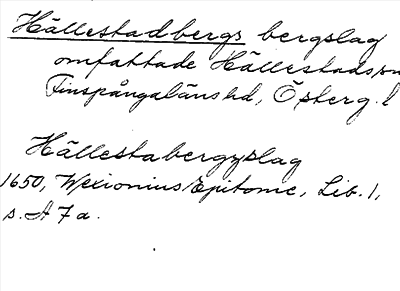 Hällestadbergs bergslag
omfattade Hällestads sn
Finspångaläns hd, Österg. l
Hällestabergzslag
1650, Wexionius Epitome, Lib. 1,
s. A 7 a.